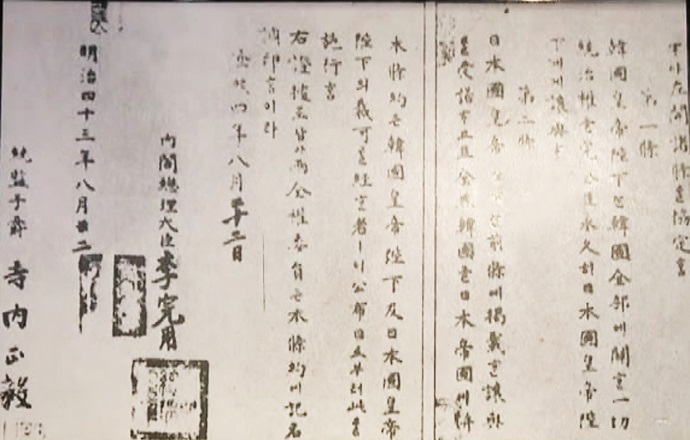 左開諸條을協定홈
第一條
韓國皇帝陛下는韓國全部에關한一切
統治權을完全且永久히日本國皇帝陛
下에게讓與홈
第二條
日本國皇帝陛下는前條에揭載한讓與
을受諾하고且全然韓國을日本帝國에併
本條約은韓國皇帝陛下及日本國皇帝
陛下의裁可을經한者ㅣ니公布日로부터此을
施行홈
右證據로삼아兩全權委員은本條約에記名
調印홈이라
隆熙四年八月二十二日
內閣總理大臣李完用
明治四十三年八月廿二
統監子爵 寺內正毅